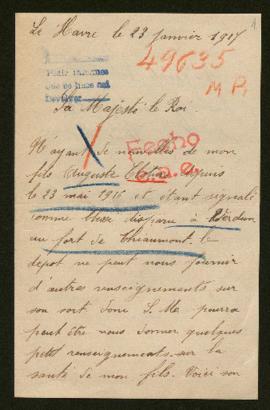 Le Havre le 23 janvier 1917
49635
M P.
Pedir informes
Sa Majesté le Roi.
Fecho
N'ayant de nouvelles de mon
fils Auguste depuis
le 23 mai 1916 et étant signalé
comme disparu à Verdun
au fort de Thiaumont. le
depot ne peut nous fournir
d'autres renseignements sur
son sort donc S. Me pourra
peut être nous donner quelques
petit renseignements sur la
santé de mon fils. Voici son